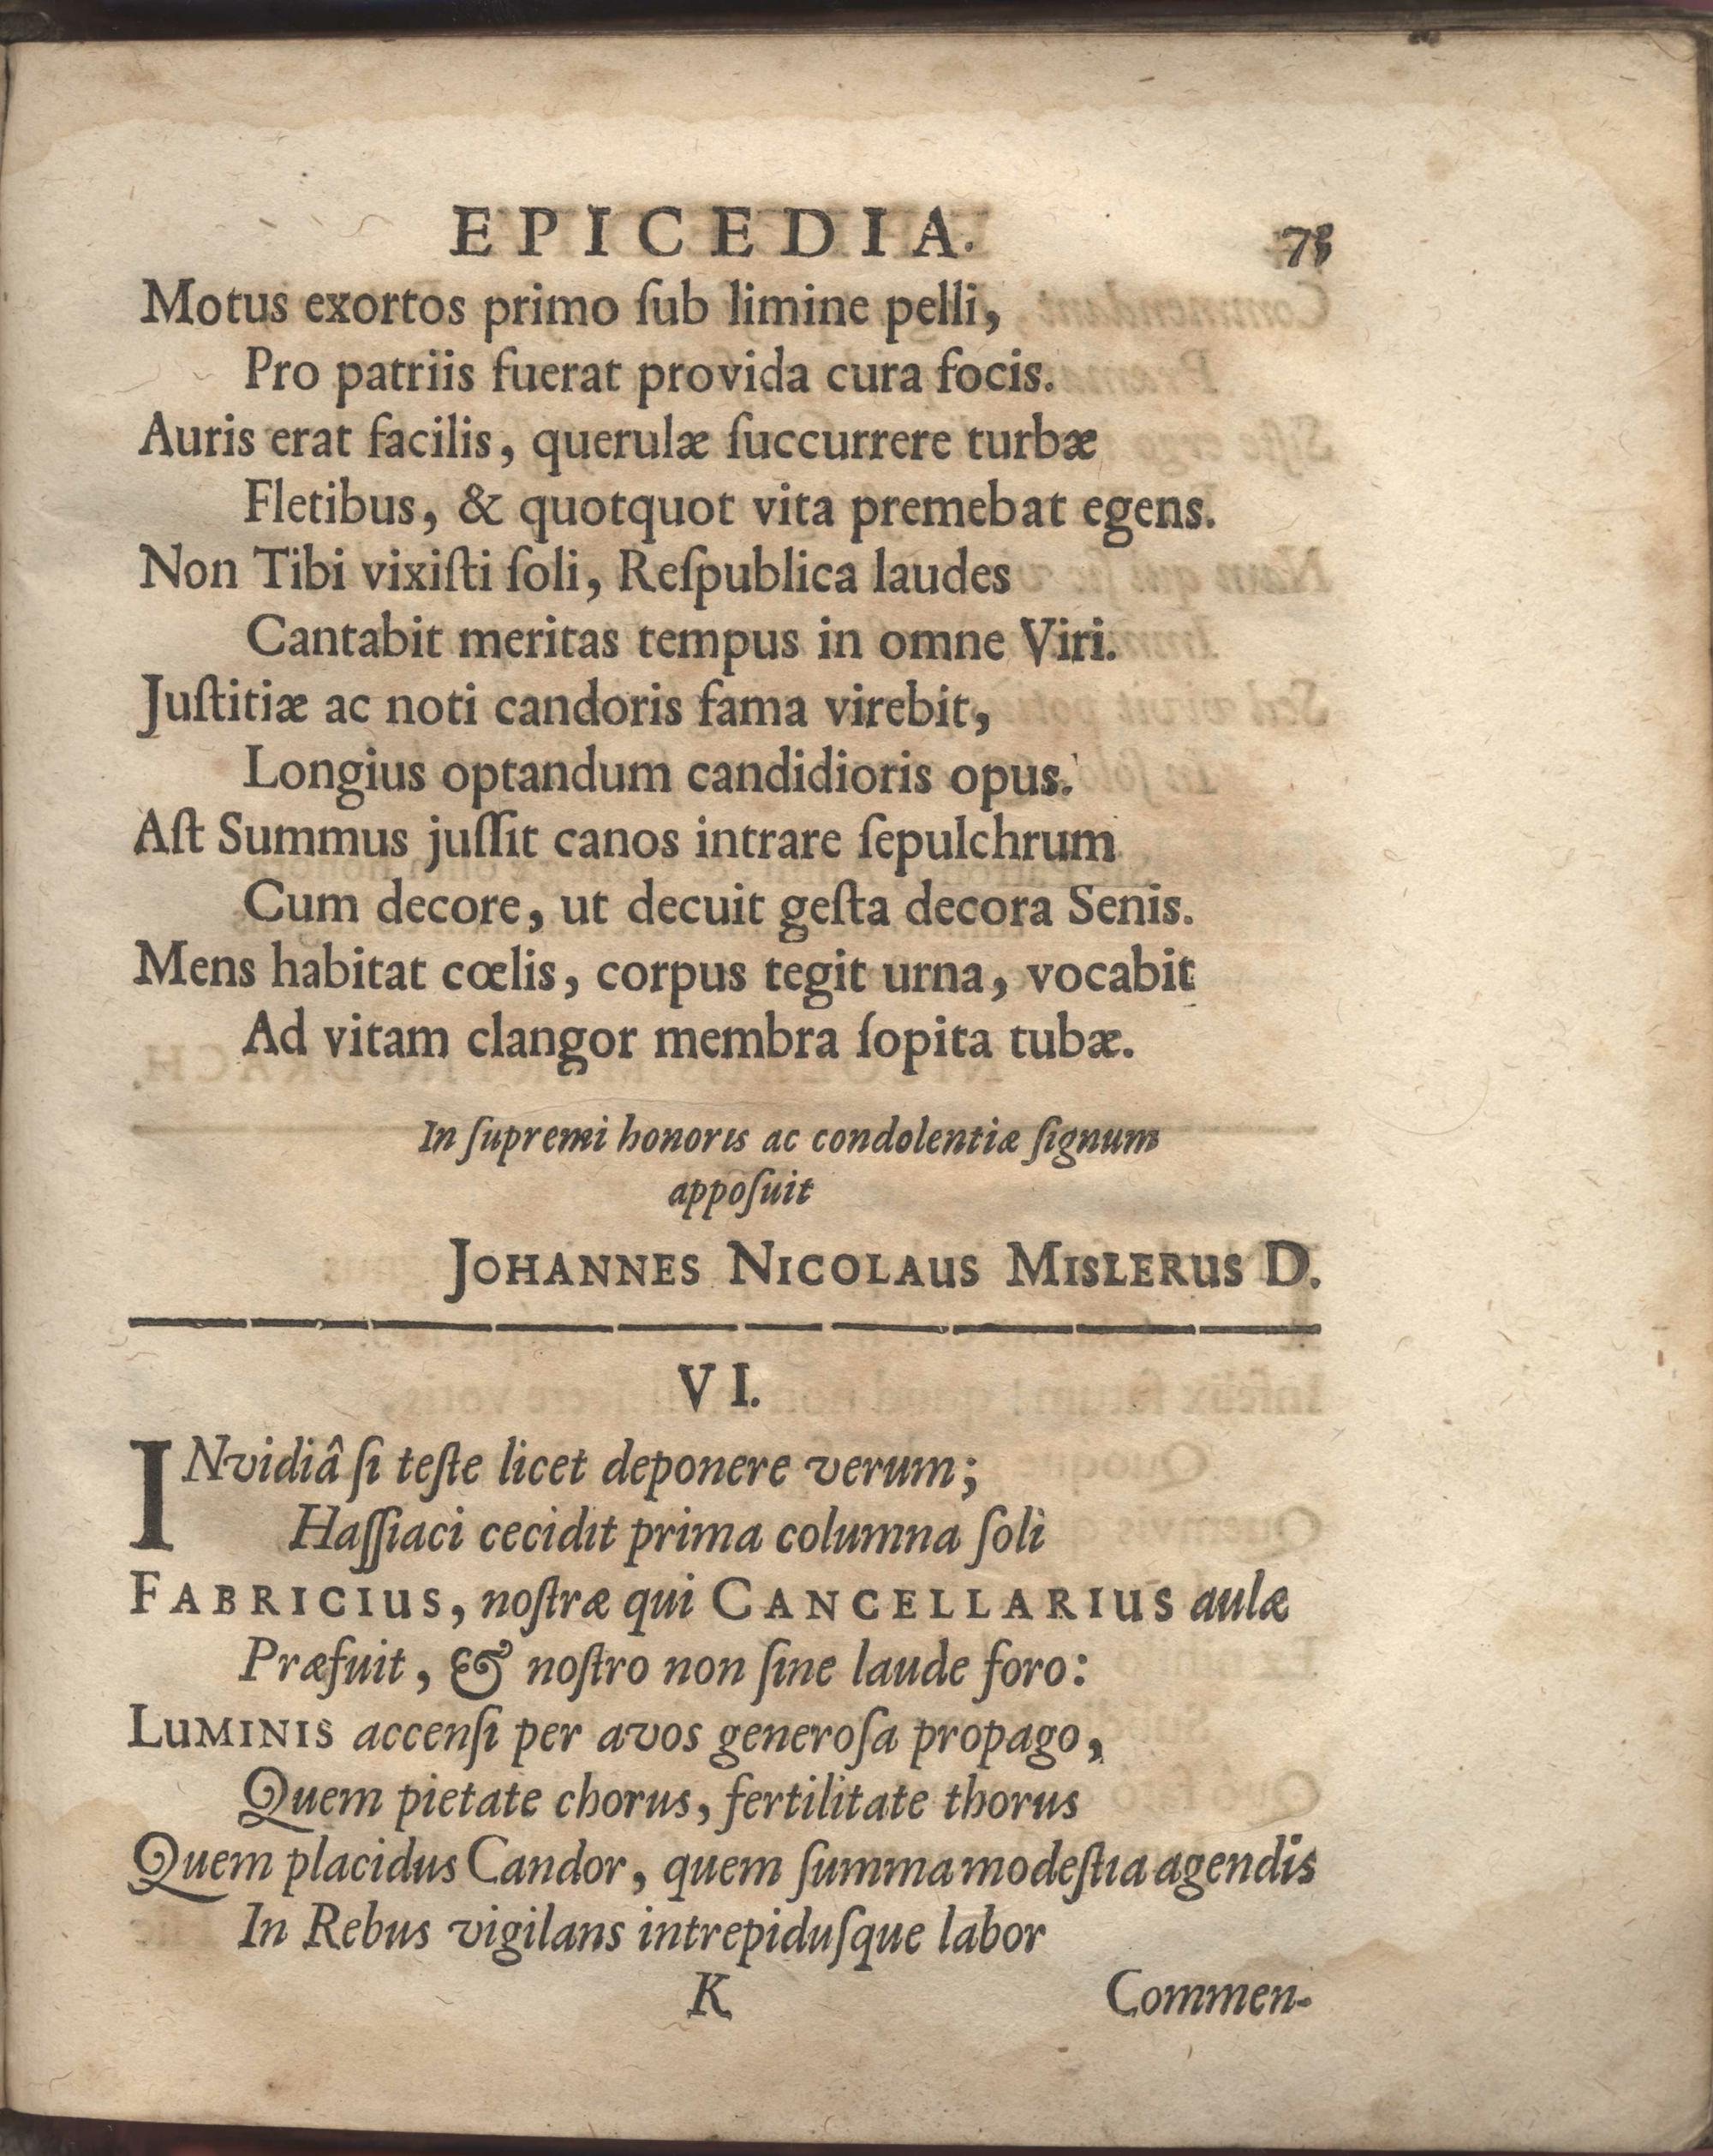 EPICEDIA. 73
Motus exortos primo ſub limine pelli,
Pro patriis fuerat provida cura focis.
Auris erat facilis, querulæ ſuccurrere turbæ
Fletibus, & quotquot vita premebat egens.
Non Tibi vixiſti ſoli, Reſpublica laudes
Cantabit meritas tempus in omne Viri.
Juſtitiæ ac noti candoris fama virebit,
Longius optandum candidioris opus.
Aſt Summus juſſit canos intrare ſepulchrum
Cum decore, ut decuit geſta decora Senis.
Mens habitat cœlis, corpus tegit urna, vocabit
Ad vitam clangor membra ſopita tubæ.
In ſupremi honoris ac condolentiæ ſignum
appoſuit
JOHANNES NICOLAUS MISLERUS D.
VI.
INvidiâ ſi teſte licet deponere verum;
Haſſiaci cecidit prima columna ſoli
FABRICIUS, noſtræ qui CANCELLARIUS aulæ
Præfuit, & noſtro non ſine laude foro:
LUMINIS accenſi per avos generoſa propago,
Quem pietate chorus, fertilitate thorus
Quem placidus Candor, quem ſumma modeſtia agendis
In Rebus vigilans intrepiduſque labor
K Commen-